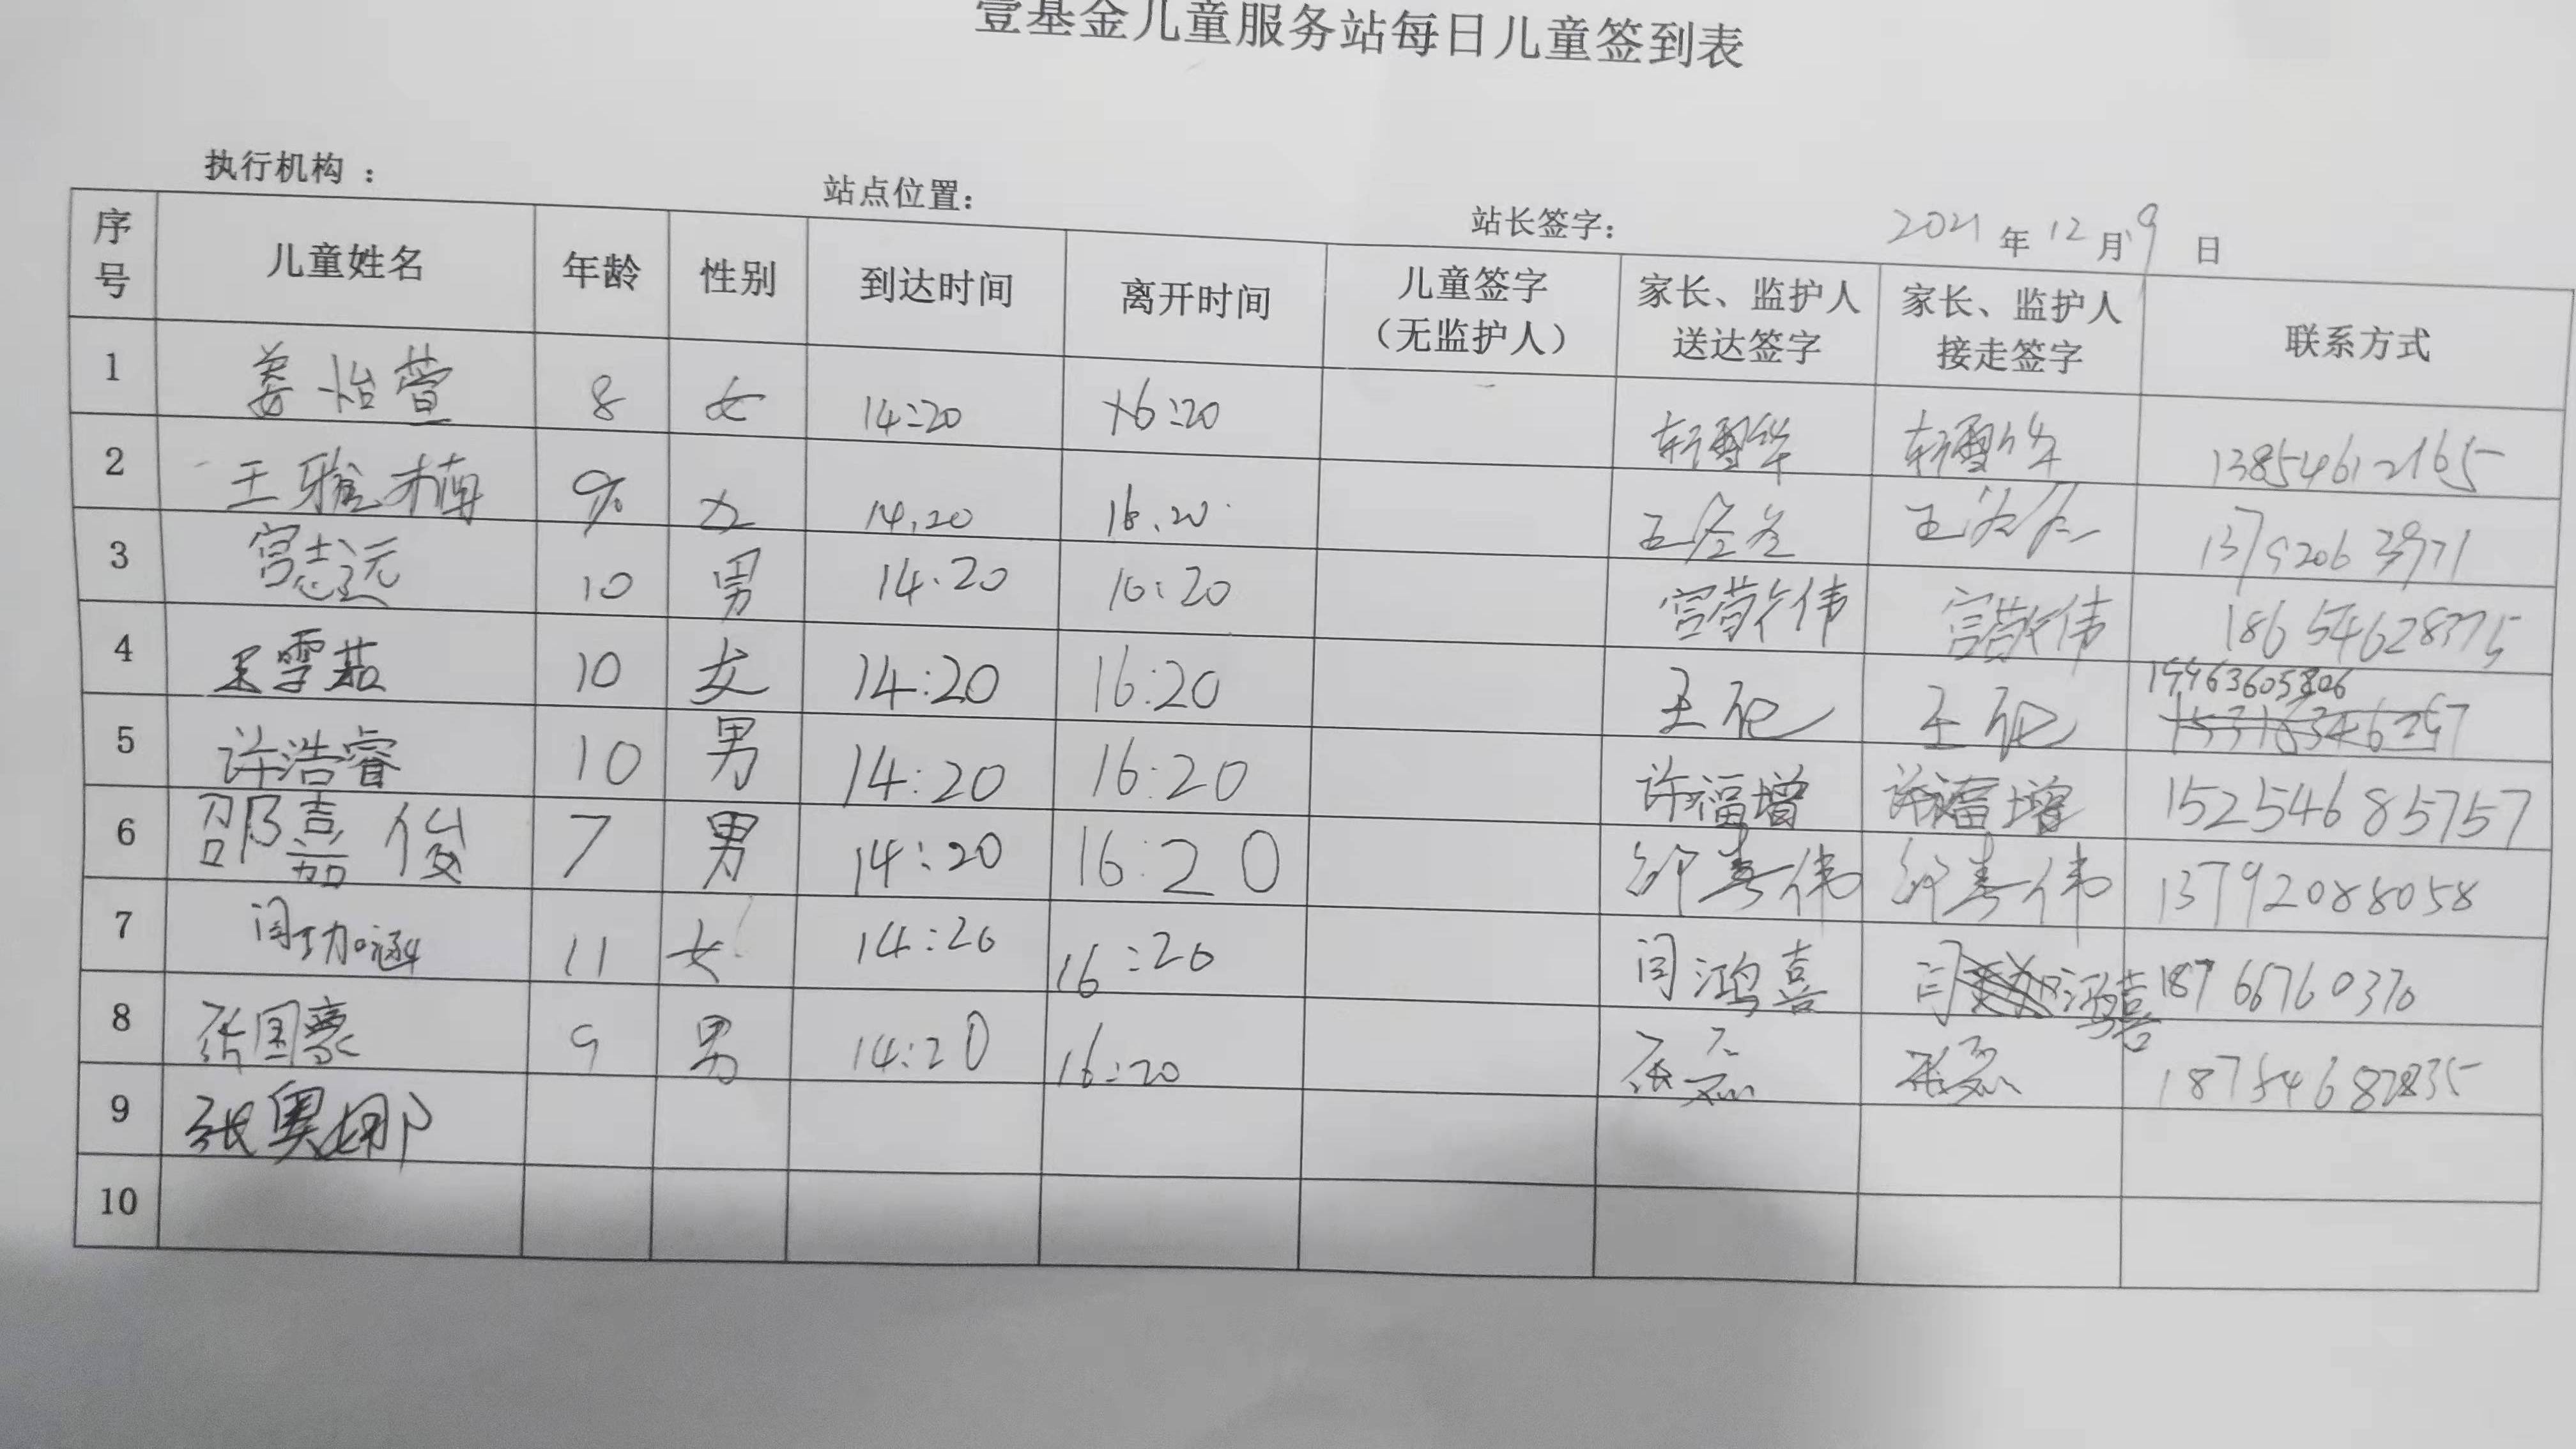 壹基金儿童服务站每日儿童签到表
执行机构 : 站点位置: 站长签字: 2021 年 12 月 9 日
序号 儿童姓名 年龄 性别 到达时间 离开时间 儿童签字（无监护人） 家长、监护人送达签字 家长、监护人接走签字 联系方式
1 姜怡萱 8 女 14:20 16:20 13854612165
2 王雅楠 女 14.20 16.20 13792063971
3 宫志远 10 男 14:20 16:20 宫敬伟 宫敬伟 18654628375
4 王雪茹 10 女 14:20 16:20
5 许浩睿 10 男 14:20 16:20 许福增 许福增 15254685757
6 邵嘉俊 7 男 14:20 16:20 邵春伟 邵春伟 13792088058
7 闫功涵 11 女 14:20 16:20 闫鸿喜 闫鸿喜 18766760370
8 张国豪 9 男 14:20 16:20
9 张奥娜
10